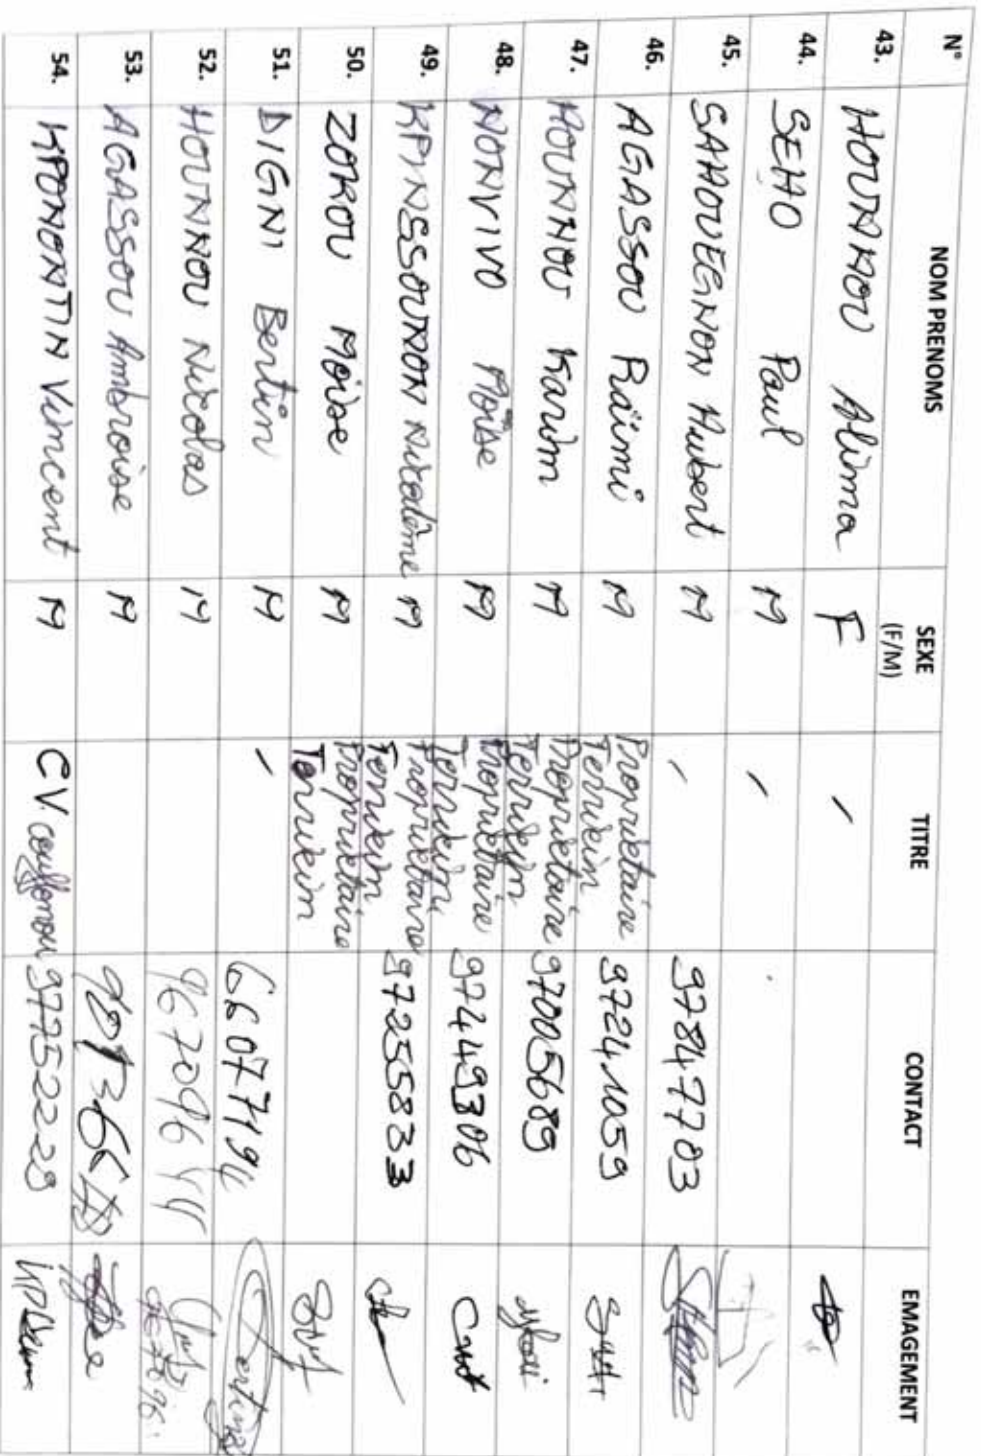 N° NOM PRENOMS SEXE (F/M) TITRE CONTACT EMAGEMENT
43. HOUNHOU Alima F -
44. SEHO Paul M -
45. SAHOUEGNON Hubert M - 97847703
46. AGASSOU Raïmi M Propriétaire Terrien 97241059
47. HOUNHOU Karim M Propriétaire Terrien 97005689
48. HONVIVO Moïse M Propriétaire Terrien 97449306
49. KPINSSOUNON Nicodème M Propriétaire Terrien 97255833
50. ZOKOU Moïse M Propriétaire Terrien
51. DIGNI Bertin M - 66077194
52. HOUNNOU Nicolas M 96709644
53. AGASSOU Ambroise M
54. KPONONTIN Vincent M CV 97752229